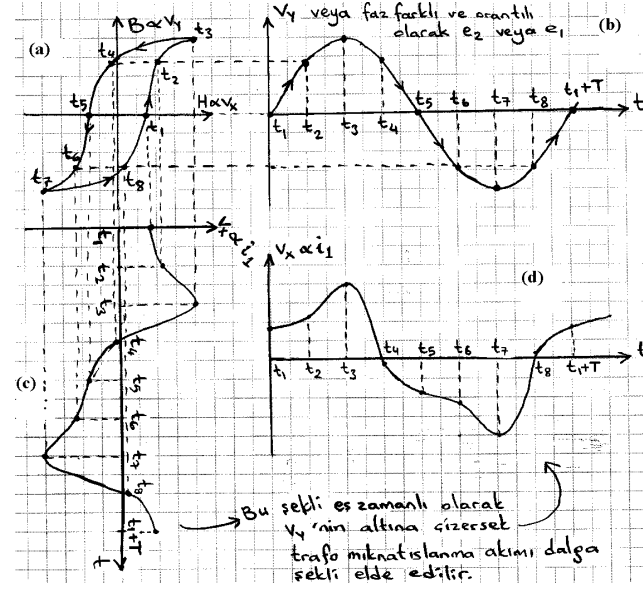 (a)
B∝V_Y
t3
t4
t2
H∝V_X
t5
t1
t6
t7
t8
V_Y veya faz farklı ve orantılı
olarak e2 veya e1
(b)
t1
t2
t3
t4
t5
t6
t7
t8
t1+T
t
V_X∝i1
t1
t2
t3
t4
t5
t6
t7
t8
t1+T
t
(c)
V_X∝i1
(d)
t1
t2
t3
t4
t5
t6
t7
t8
t1+T
t
Bu şekli eş zamanlı olarak
V_Y'nin altına çizersek
trafo mıknatıslanma akımı dalga
şekli elde edilir.